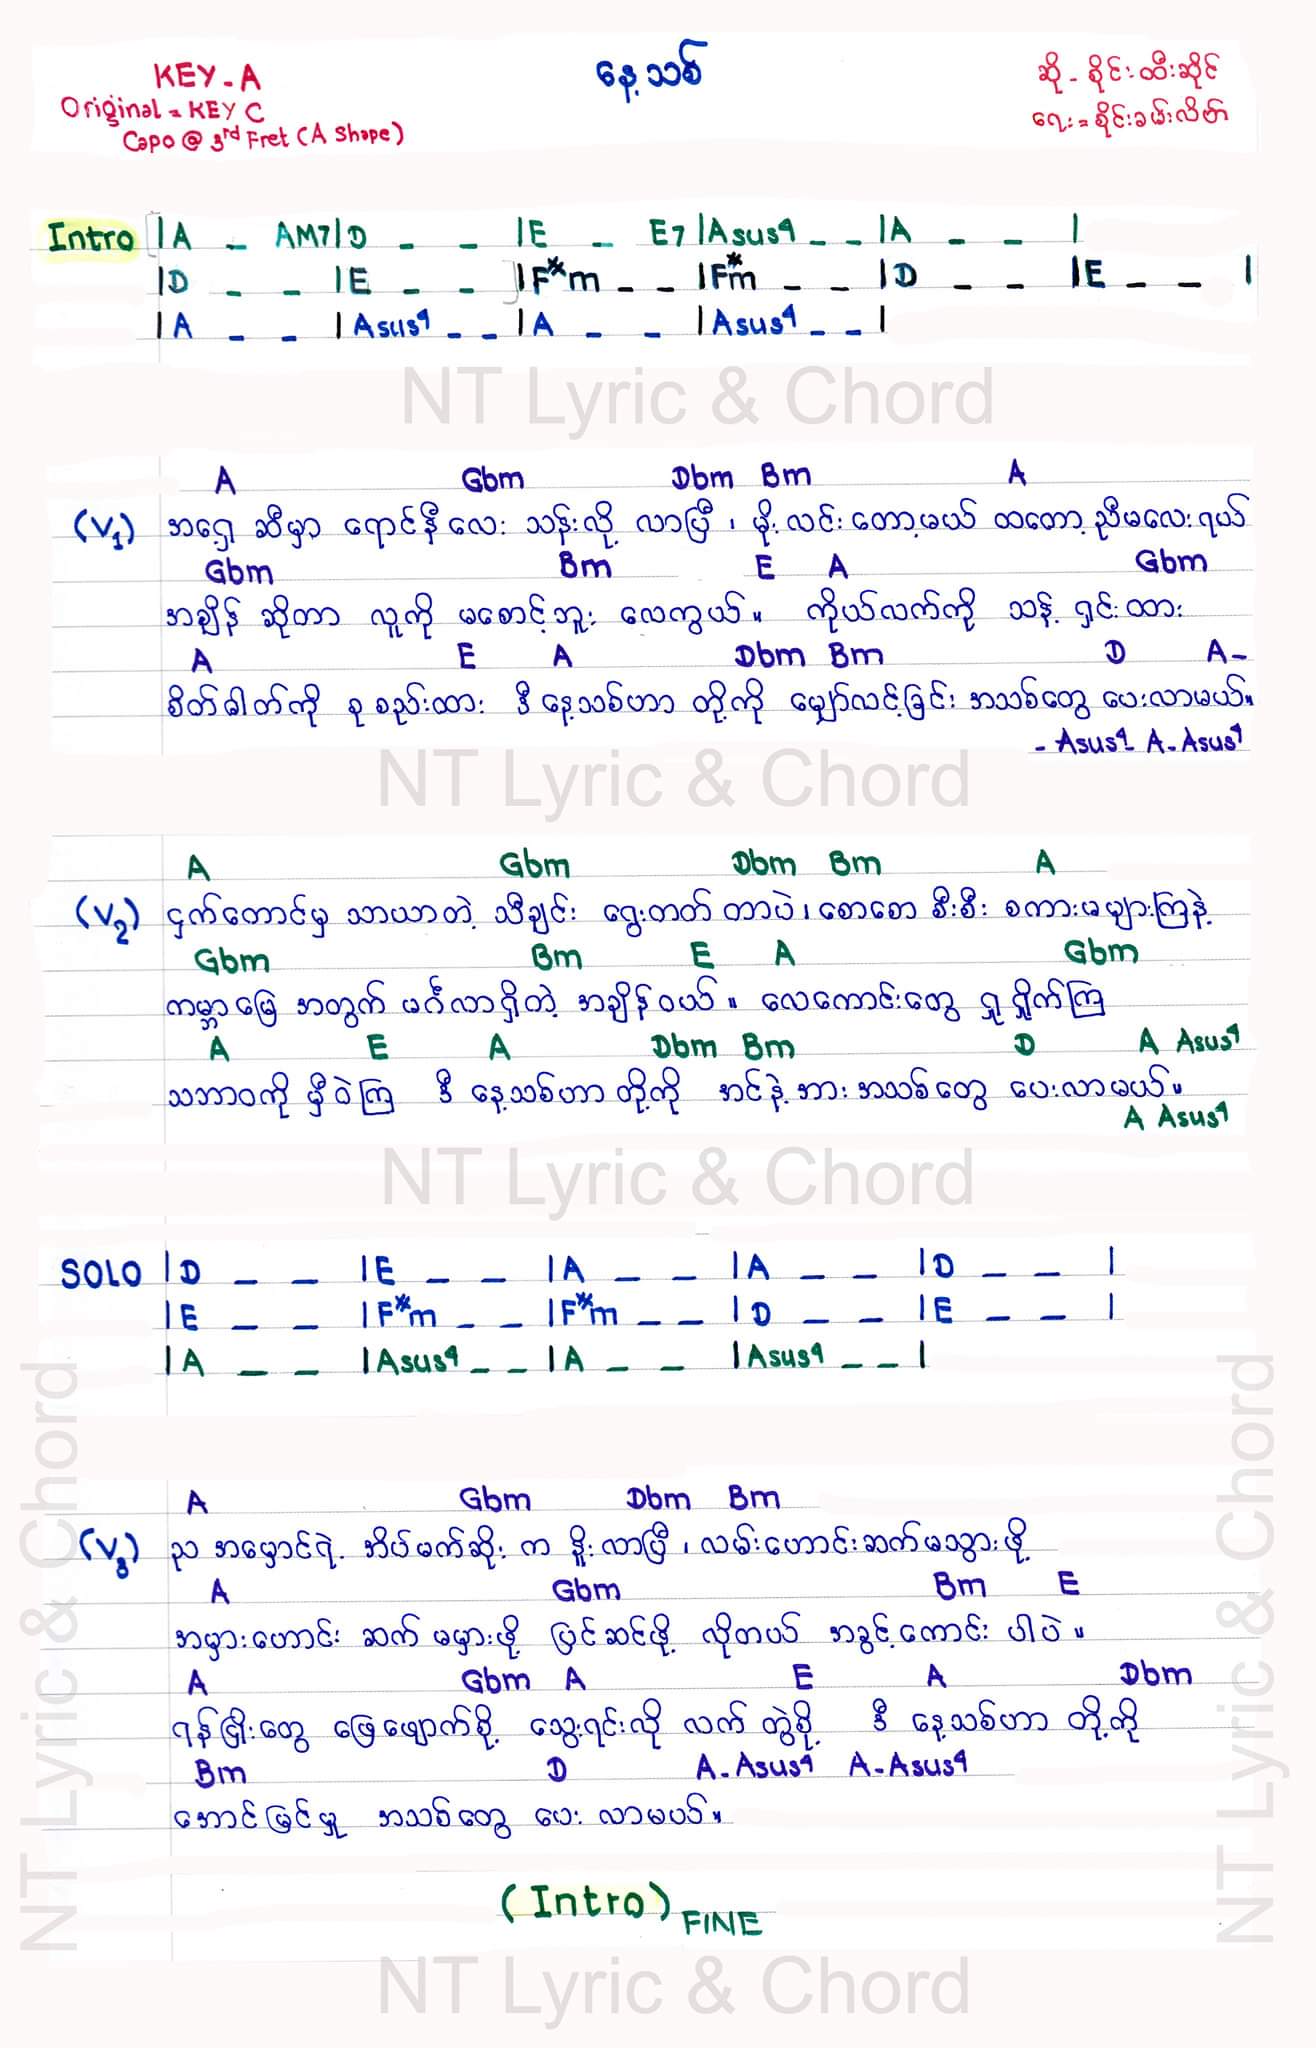 KEY - A
နေ့သစ်
ဆို - စိုင်းထီးဆိုင်
Original = KEY C
ရေး = စိုင်းခမ်းလိတ်
Capo @ 3rd Fret (A Shape)
Intro |A _ AM7|D _ _ |E _ E7|Asus4 _ _ |A _ _ |
|D _ _ |E _ _ |F#m _ _ |F#m _ _ |D _ _ |E _ _ |
|A _ _ |Asus4 _ _ |A _ _ |Asus4 _ _ |
NT Lyric & Chord
A Gbm Dbm Bm A
(V1) အရှေ့ဆီမှာ ရောင်နီလေး သန်းလို့ လာပြီ ၊ မိုးလင်းတော့မယ် ထတော့ ညီမလေးရယ်
Gbm Bm E A Gbm
အချိန် ဆိုတာ လူကို မစောင့်ဘူး လေကွယ် ။ ကိုယ်လက်ကို သန့် ရှင်းထား
A E A Dbm Bm D A -
စိတ်ဓါတ်ကို စုစည်းထား ဒီနေ့သစ်ဟာ တို့ကို မျှော်လင့်ခြင်း အသစ်တွေ ပေးလာမယ် ။
- Asus4 A - Asus4
NT Lyric & Chord
A Gbm Dbm Bm A
(V2) ငှက်တောင်မှ သာယာတဲ့ သီချင်း ရွေးတတ် တာပဲ ၊ စောစော စီးစီး စကားမများကြနဲ့
Gbm Bm E A Gbm
ကမ္ဘာမြေ အတွက် မင်္ဂလာရှိတဲ့ အချိန်ဝယ် ။ လေကောင်းတွေ ရှုရှိုက်ကြ
A E A Dbm Bm D A Asus4
သဘာဝကို မှီဝဲကြ ဒီ နေ့သစ်ဟာ တို့ကို အင်နဲ့အား အသစ်တွေ ပေးလာမယ် ။
A Asus4
NT Lyric & Chord
SOLO |D _ _ |E _ _ |A _ _ |A _ _ |D _ _ |
|E _ _ |F#m _ _ |F#m _ _ |D _ _ |E _ _ |
|A _ _ |Asus4 _ _ |A _ _ |Asus4 _ _ |
A Gbm Dbm Bm
(V3) ည အမှောင်ရဲ့ အိပ်မက်ဆိုး က နိုးလာပြီ ၊ လမ်းဟောင်းဆက်မသွားဖို့
A Gbm Bm E
အမှားဟောင်း ဆက် မမှားဖို့ ပြင်ဆင်ဖို့ လိုတယ် အခွင့်ကောင်း ပါပဲ ။
A Gbm A E A Dbm
ရန်ငြိုးတွေ ဖြေဖျောက်စို့ သွေးရင်းလို လက် တွဲစို့ ဒီ နေ့သစ်ဟာ တို့ကို
Bm D A - Asus4 A - Asus4
အောင်မြင်မှု အသစ်တွေ ပေး လာမယ် ။
(Intro) FINE
NT Lyric & Chord
NT Lyric & Chord
NT Lyric & Chord